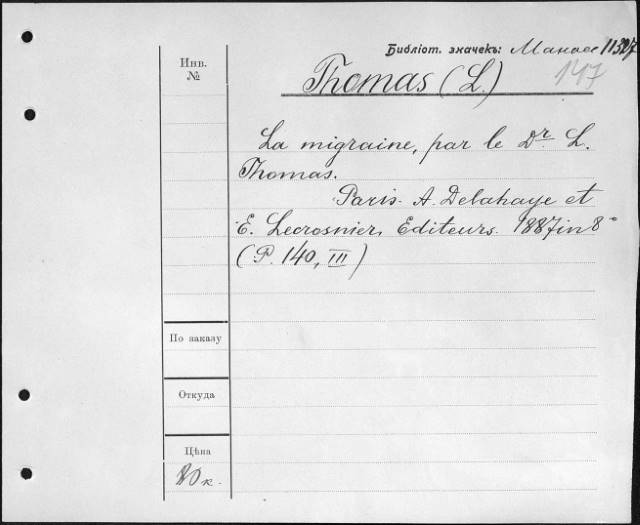 Библіот. значекъ: Манасе 11527
147
Инв.
№
Thomas (L.)
La migraine, par le Dr L.
Thomas.
Paris. A. Delahaye et
E. Lecrosnier, Editeurs. 1887 in 8°
(P. 140, III)
По заказу
Откуда
Цѣна
20 к.